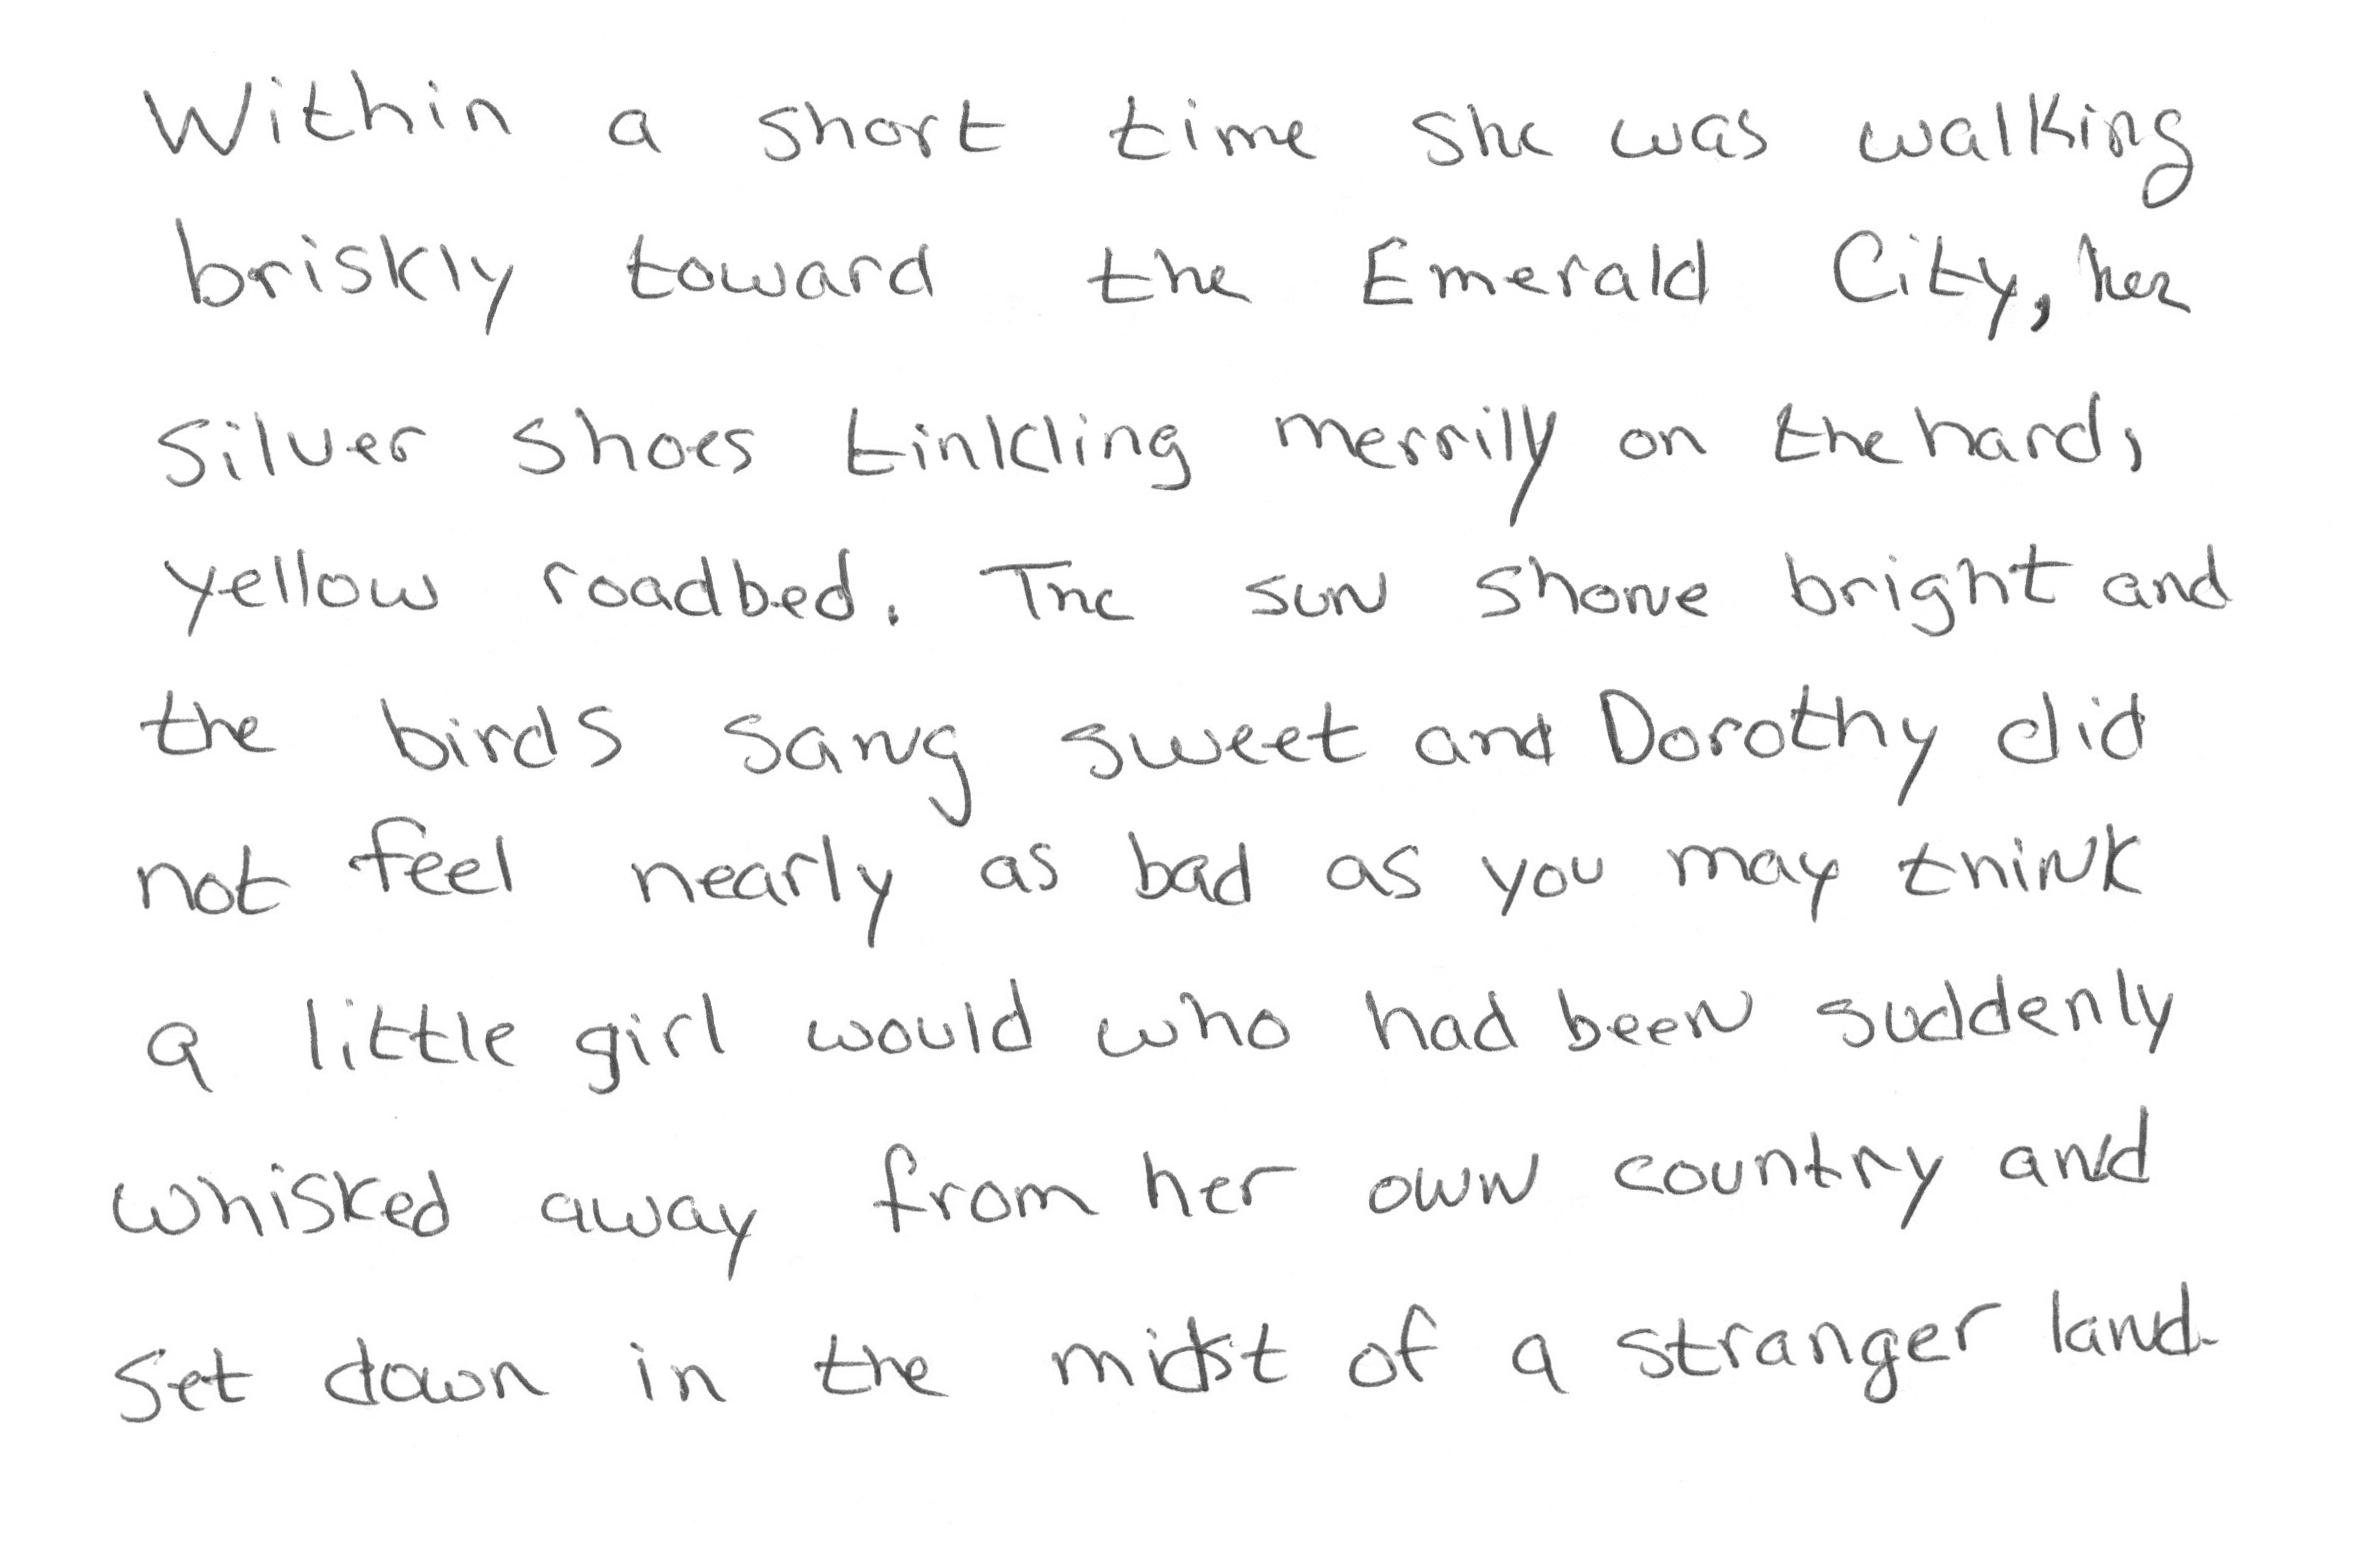 Within a short time she was walking
briskly toward the Emerald City, her
silver shoes tinkling merrily on the hard,
yellow roadbed. The sun shone bright and
the birds sang sweet and Dorothy did
not feel nearly as bad as you may think
a little girl would who had been suddenly
whisked away from her own country and
set down in the midst of a stranger land.